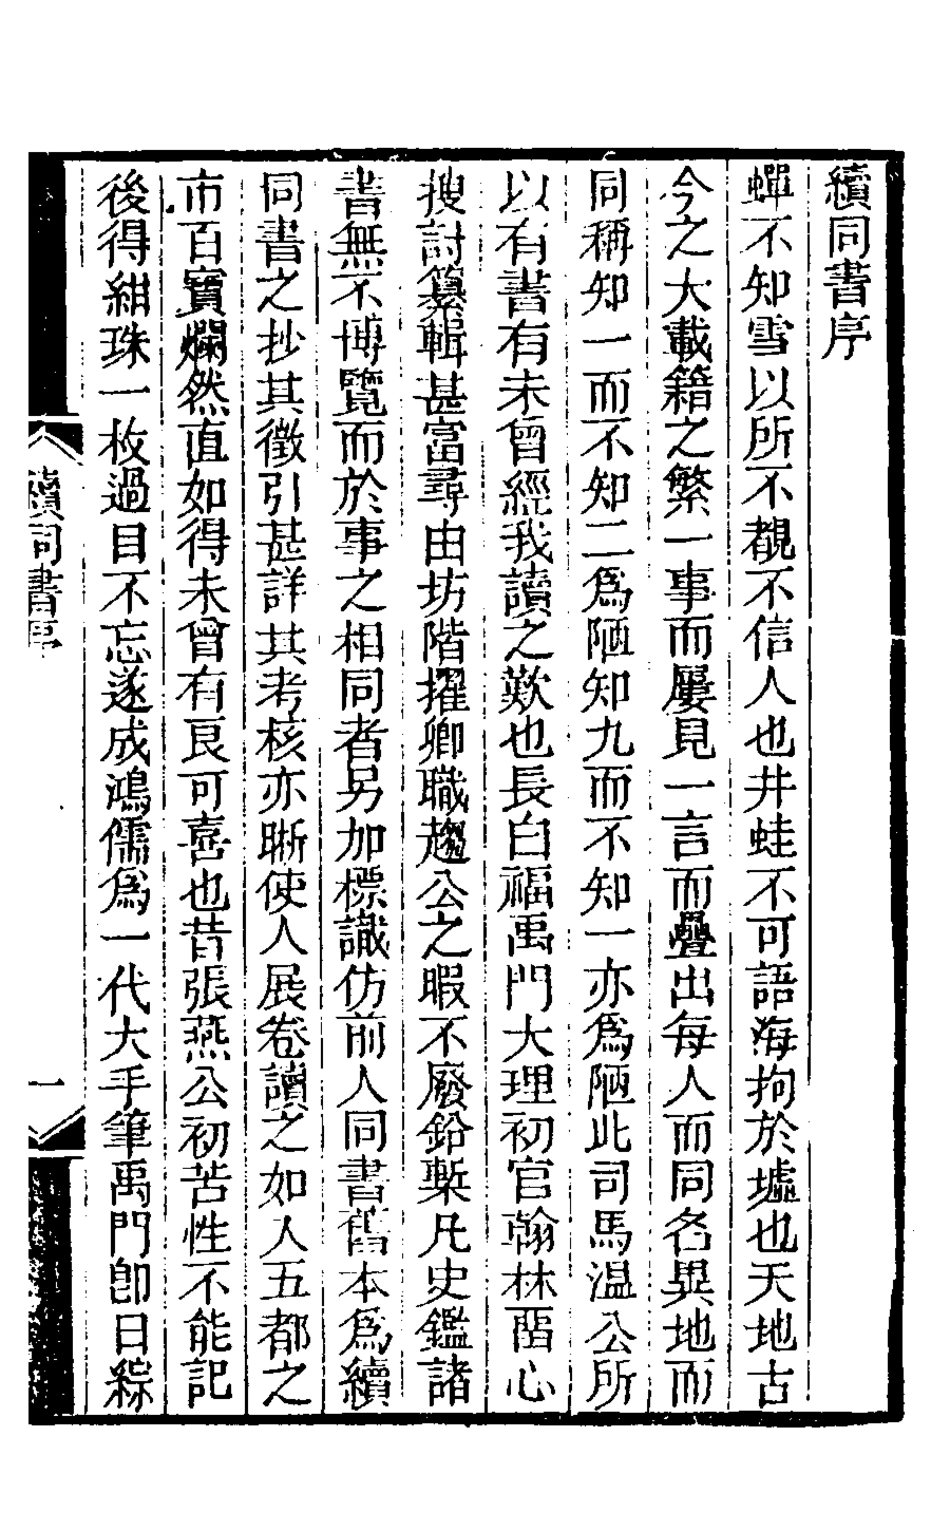 續同書序
蟬不知雪以所不覩不信人也井蛙不可語海拘於墟也天地古
今之大載籍之繁一事而屢見一言而疊出每人而同名異地而
同稱知一而不知二爲陋知九而不知一亦爲陋此司馬温公所
以有書有未曾經我讀之歎也長白福禹門大理初官翰林畱心
搜討纂輯甚富尋由坊階擢卿職趨公之暇不廢鉛槧凡史鑑諸
書無不博覽而於事之相同者另加標識仿前人同書舊本爲續
同書之抄其徵引甚詳其考核亦晰使人展卷讀之如人五都之
市百寶爛然直如得未曾有良可喜也昔張燕公初苦性不能記
後得紺珠一枚過目不忘遂成鴻儒爲一代大手筆禹門卽日綜
續同書序
一